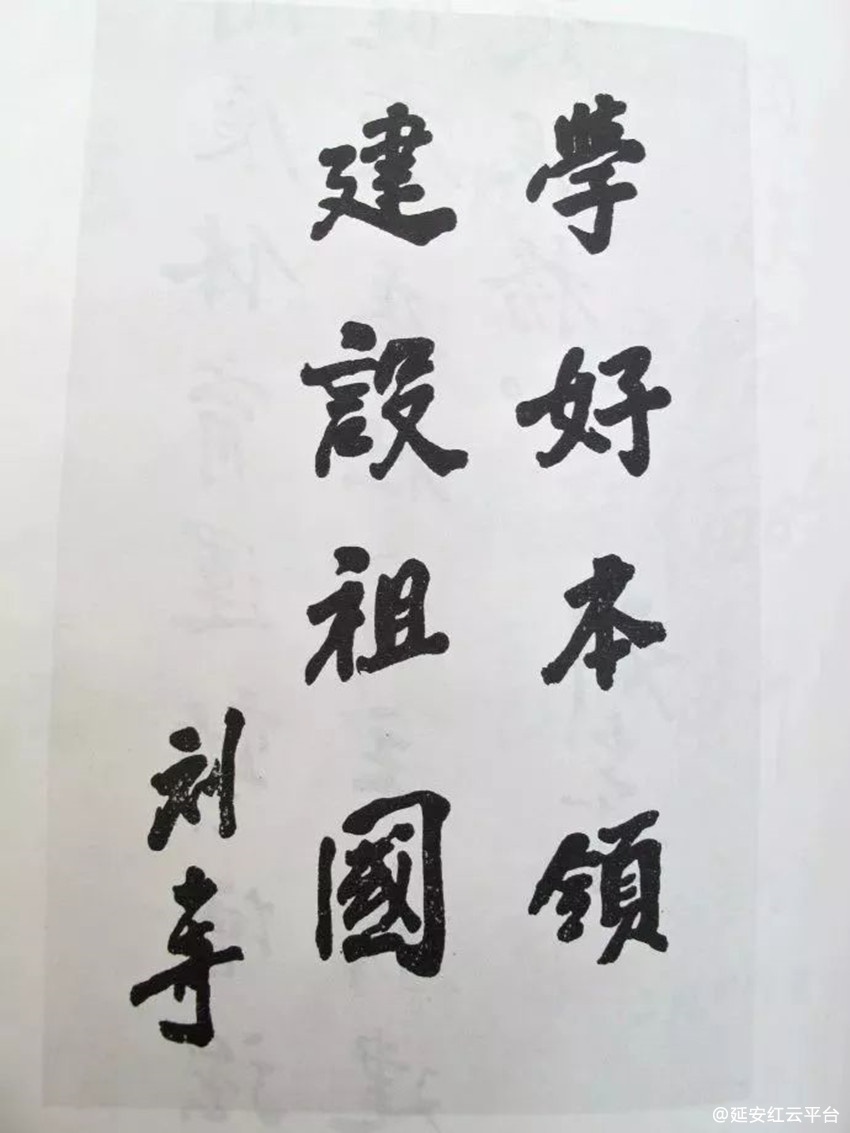 學好本領
建設祖國
刘
@延安红云平台